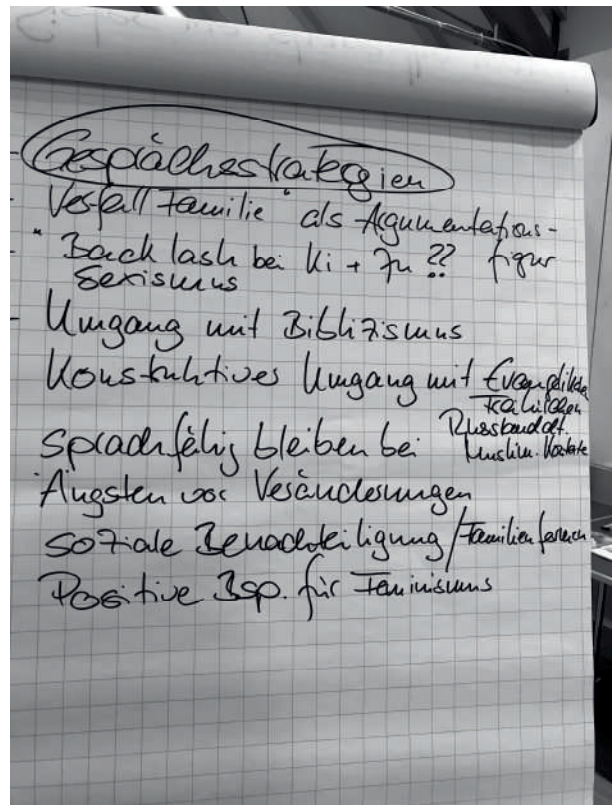 - Gesprächsstrategien
- Verfall Familie" als Argumentations-
- "Backlash bei Ki + Ju ?? figur
Sexismus
- Umgang mit Biblizismus
Konstruktives Umgang mit Evangelikalen
Katholischen
Russlanddt.
sprachfähig bleiben bei Muslim. Kontexte
Ängsten vor Veränderungen
soziale Benachteiligung / Familienformen
Positive Bsp. für Feminismus